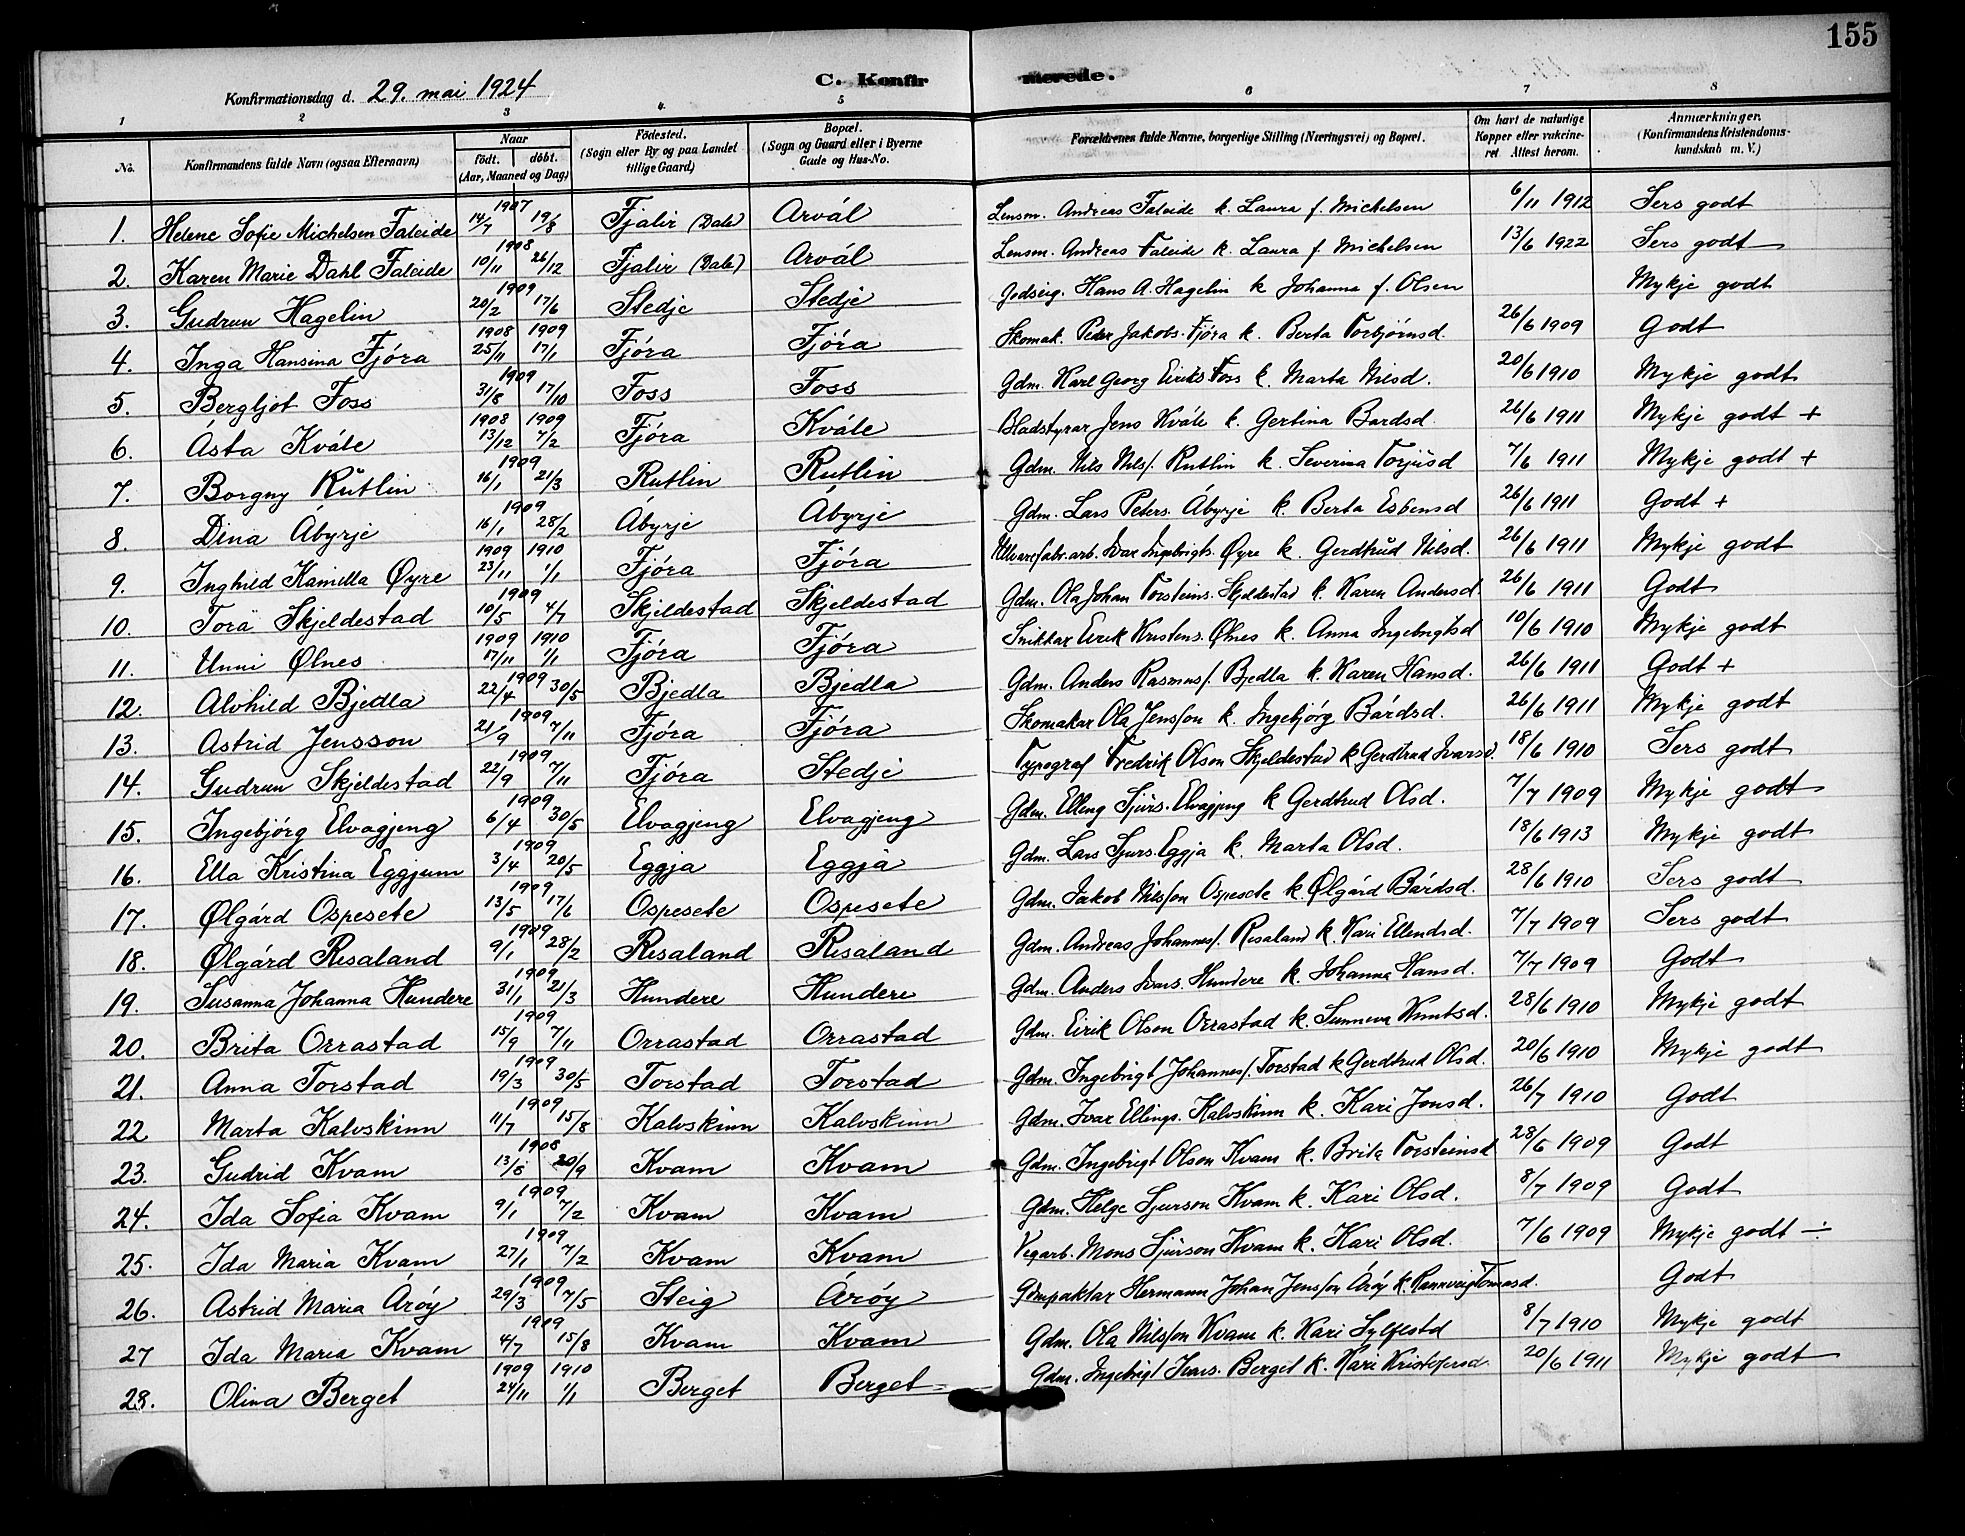 155
C. Konfirmerede.
Konfirmationsdag d. 29. mai 1924
1 2 3 4 5 6 7 8
No. | Konfirmandens fulde Navn (ogsaa Efternavn) | Naar født. døbt. (Aar, Maaned og Dag) | Fødested. (Sogn eller By og paa Landet tillige Gaard) | Bopæl. (Sogn og Gaard eller i Byerne Gade og Hus-No. | Forældrenes fulde Navne, borgerlige Stilling (Næringsvei) og Bopæl. | Om havt de naturlige Kopper eller vakcineret. Attest herom. | Anmærkninger. (Konfirmandens Kristendomskundskab m. V.)
1. Helene Sofie Michelsen Faleide 1907 14/7 19/8 Fjalir (Dale) Arvál Lensm. Andreas Faleide k. Laura f. Michelsen 6/11 1912 Sers godt
2. Karen Marie Dahl Faleide 1908 10/11 26/12 Fjalir (Dale) Arvál Lensm. Andreas Faleide k. Laura f. Michelsen 13/6 1922 Sers godt
3. Gudrun Hagelin 1909 20/2 17/6 Stedje Stedje Jodseig. Hans A. Hagelin k Johanna f. Olsen Mykje godt
4. Inga Hansina Fjóra 1908 1909 25/11 17/1 Fjóra Fjóra Skomak. Peder Jakobs. Fjóra k. Berta Torbjörnsd. 26/6 1909 Godt
5. Bergljot Foss 1909 31/8 17/10 Foss Foss Gdm. Karl Georg Eiriks Foss k. Marta Nilsd. 20/6 1910 Mykje godt
6. Ásta Kvále 1908 1909 13/12 7/2 Fjóra Kvále Bladstyrar Jens Kvále k. Gertina Bardsd. 26/6 1911 Mykje godt +
7. Borgny Rutlin 1909 16/1 21/3 Rutlin Rutlin Gdm. Nils Nilss. Rutlin k. Severina Torjusd 7/6 1911 Mykje godt +
8. Dina Ábyrje 1909 16/1 28/2 Abyrje Ábyrje Gdm. Lars Peters. Ábyrje k. Berta Esbensd 26/6 1911 Godt +
9. Inghild Kamilla Øyre 1909 1910 23/11 1/1 Fjóra Fjóra Ullvarefabr.arb. Ivar Ingebrigts. Øyre k. Gerdtrud Nilsd. 26/6 1911 Mykje godt
10. Tora Skjeldestad 1909 10/5 4/7 Skjeldestad Skjeldestad Gdm. Ola Johan Torsteins. Skjeldestad k. Karen Andersd 26/6 1911 Godt
11. Unni Ølnes 1909 1910 17/11 1/1 Fjóra Fjóra Snikkar Eirik Kristens. Ølnes k. Anna Ingebrigtsd 10/6 1910 Mykje godt
12. Alvhild Bjedla 1909 22/4 30/5 Bjedla Bjedla Gdm. Anders Rasmuss. Bjedla k. Karen Hansd. 26/6 1911 Godt +
13. Astrid Jensson 1909 21/9 7/11 Fjóra Fjóra Skomakar Ola Jensson k. Ingebjørg Bárdsd. 26/6 1911 Mykje godt
14. Gudrun Skjeldestad 1909 22/9 7/11 Fjóra Stedje Typograf Fredrik Olson Skjeldestad k Gerdtrud Ivarsd. 18/6 1910 Sers godt
15. Ingebjórg Elvagjeng 1909 6/4 30/5 Elvagjeng Elvagjeng Gdm. Elling Sjurs. Elvagjeng k Gerdtrud Olsd. 7/7 1909 Mykje godt
16. Ella Kristina Eggjum 1909 3/4 20/5 Eggja Eggja Gdm. Lars Sjurs. Eggja k. Marta Olsd. 18/6 1913 Mykje godt
17. Ølgárd Ospesete 1909 13/5 17/6 Ospesete Ospesete Gdm. Jakob Nilsson Ospesete k Ølgárd Bárdsd. 28/6 1910 Sers godt
18. Ølgárd Risaland 1909 9/1 28/2 Risaland Risaland Gdm. Andreas Johanness. Risaland k. Kari Ellendsd. 7/7 1909 Sers godt
19. Susanna Johanna Hundere 1909 31/1 21/3 Hundere Hundere Gdm. Anders Ivars. Hundere k. Johanna Hansd. 7/7 1909 Godt
20. Brita Orrastad 1909 15/9 7/11 Orrastad Orrastad Gdm. Eirik Olson Orrastad k. Sunneva Knutsd. 28/6 1910 Mykje godt
21. Anna Torstad 1909 19/3 30/5 Torstad Torstad Gdm. Ingebrigt Johanness. Torstad k Gerdtrud Olsd. 20/6 1910 Mykje godt
22 Marta Kalvskinn 1909 11/7 15/8 Kalvskinn Kalvskinn Gdm. Ivar Ellings. Kalvskinn k. Kari Jonsd. 26/7 1910 Godt
23. Gudrid Kvam 1908 13/8 20/9 Kvam Kvam Gdm. Ingebrigt Olson Kvam k. Brita Torsteinsd 28/6 1909 Godt
24. Ida Sofia Kvam 1909 9/1 7/2 Kvam Kvam Gdm. Helge Sjurson Kvam k. Kari Olsd. 8/7 1909 Godt
25. Ida Maria Kvam 1909 27/1 7/2 Kvam Kvam Vegarb. Mons Sjurson Kvam k. Kari Olsd. 7/6 1909 Mykje godt ÷
26. Astrid Maria Áróy 1909 29/3 7/5 Steig Áróy Gdmpaktar Hermann Johan Jensson Áróy k. Rannveig Tomasd. Godt
27 Ida Maria Kvam 1909 4/7 15/8 Kvam Kvam Gdm. Ola Nilsson Kvam k. Kari Sylfestd 8/7 1910 Mykje godt
28. Olina Berget 1909 1910 24/11 1/1 Berget Berget Gdm. Ingebrigt Ivars. Berget k. Kari Kristofersd. 20/6 1911 Mykje godt